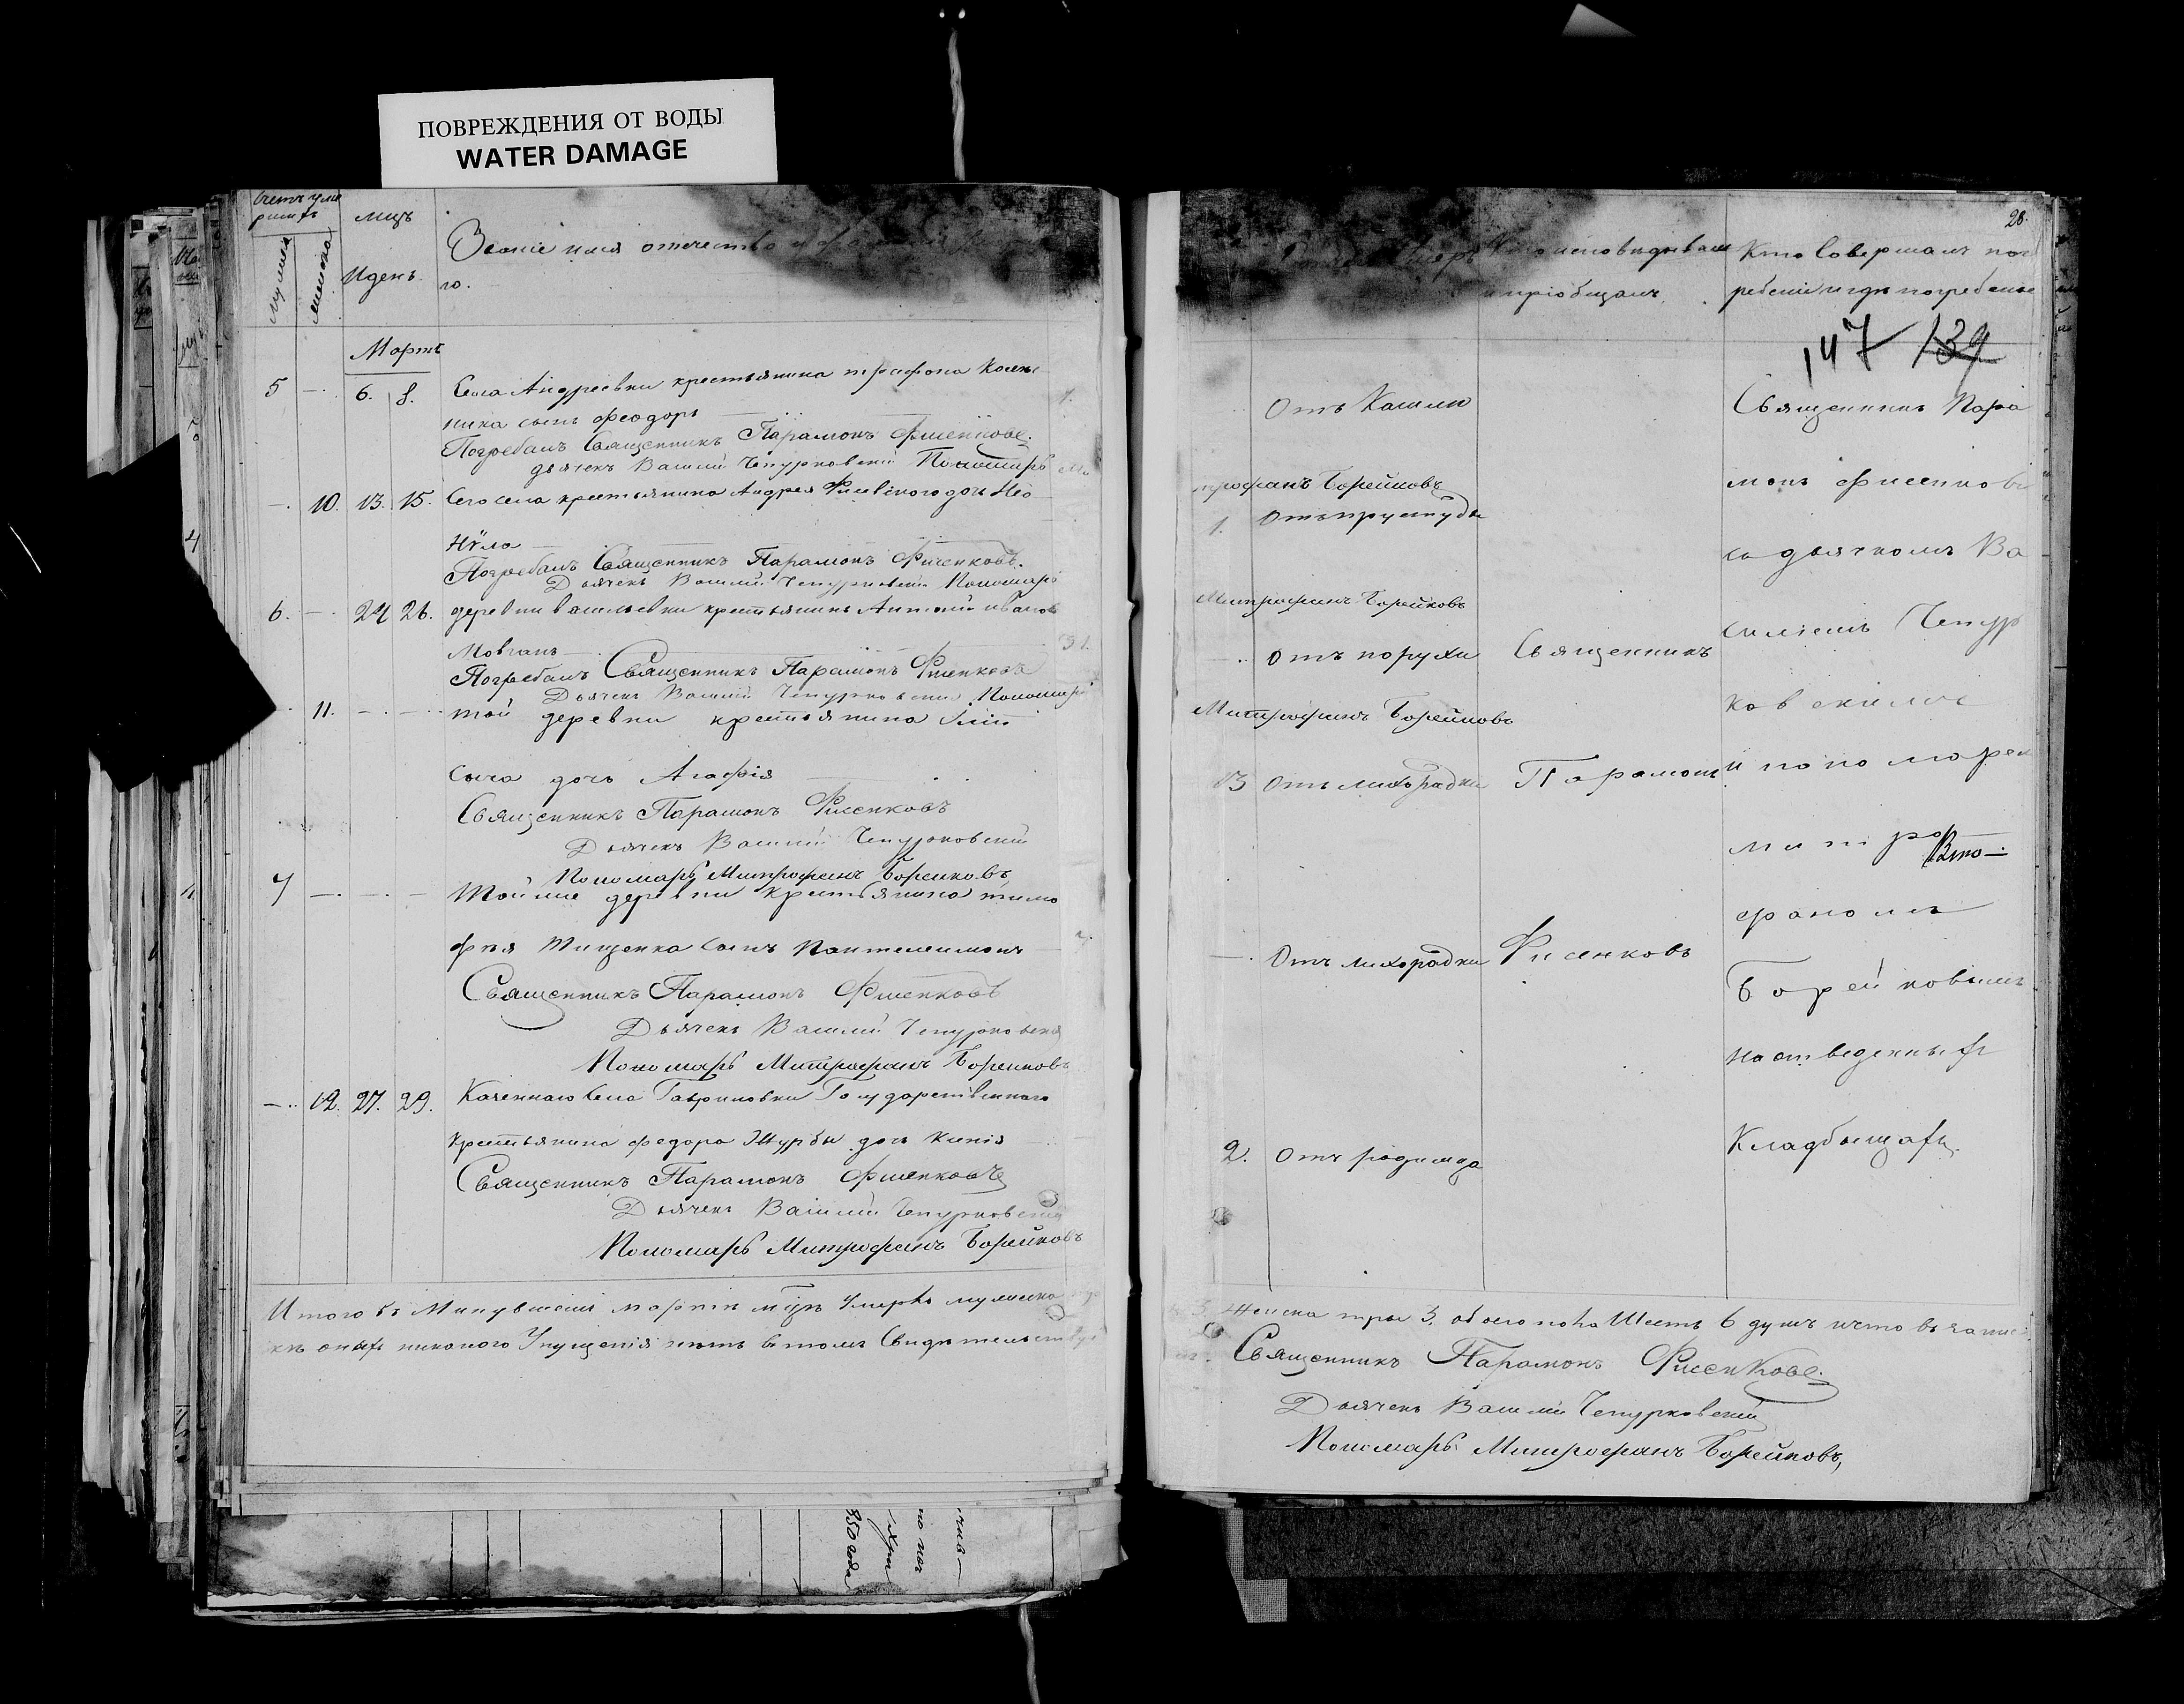 ПОВРЕЖДЕНИЯ ОТ ВОДЫ
WATER DAMAGE
мужеска
женска
мцъ
Идень
Званіе имя отечество
го.
Мартъ
5 6. 8. Села Андреевки крестьянина
сынъ Феодоръ
Погребалъ Священникъ Парамонъ Фисенковъ.
Дьячекъ Василій Чепурковскій Пономарь
10. 13. 15. Сего села крестьянина Андрея дочь Нео
нула
Погребалъ Священникъ Парамонъ Фисенковъ.
Дьячекъ Василій Чепурковскій Пономарь
6. 24 26. деревни Васильевки крестьянинъ Антоній Иванов
Мовчанъ
Погребалъ Священникъ Парамонъ Фисенковъ
Дьячекъ Василій Чепурковскій Пономарь
11. той деревни крестьянина
Сыча дочь Агафія
Священникъ Парамонъ Фисенковъ
Дьячекъ Василій Чепурковскій
Пономарь Митрофанъ Борейковъ
7 Той же деревни крестьянина тимо
фея Тищенка сынъ Пантелеимонъ
Священникъ Парамонъ Фисенковъ
Дьячекъ Василій Чепурковскій
Пономарь Митрофанъ Борейковъ
12. 27. 29. Казеннаго села Гавриловки Государственнаго
крестьянина Федора Журбы дочь Ксенія
Священникъ Парамонъ Фисенковъ
Дьячекъ Василій Чепурковскій
Пономарь Митрофанъ Борейковъ
Итого въ Минувшемъ мартѣ мцѣ Умерло мужеска
никакого Упущенія нѣтъ втомъ Свидѣтельству
350 года
28.
Кто исповѣдывалъ
и пріобщалъ
Кто Совершалъ пог
ребеніе игдѣ погребены
147 139
Отъ Кашлю
трофанъ Борейковъ
1. Отъ простуды
Митрофанъ Борейковъ
Отъ порухи
Митрофанъ Борейковъ
13 Отъ лихорадки
Отъ лихорадки
2. Отъ родимца
Священникъ
Парамонъ
Фисенковъ
Священникъ Пара
монъ Фисенковъ
съ дьячкомъ Ва
силіемъ Чепур
ковскимъ
и пономарем
митро
фаномъ
Борейковымъ
на отведенныхъ
Кладбищахъ.
женска три 3. обоего пола Шесть 6 душъ ичто въ записи
Священникъ Парамонъ Фисенковъ.
Дьячекъ Василій Чепурковскій
Пономарь Митрофанъ Борейковъ,